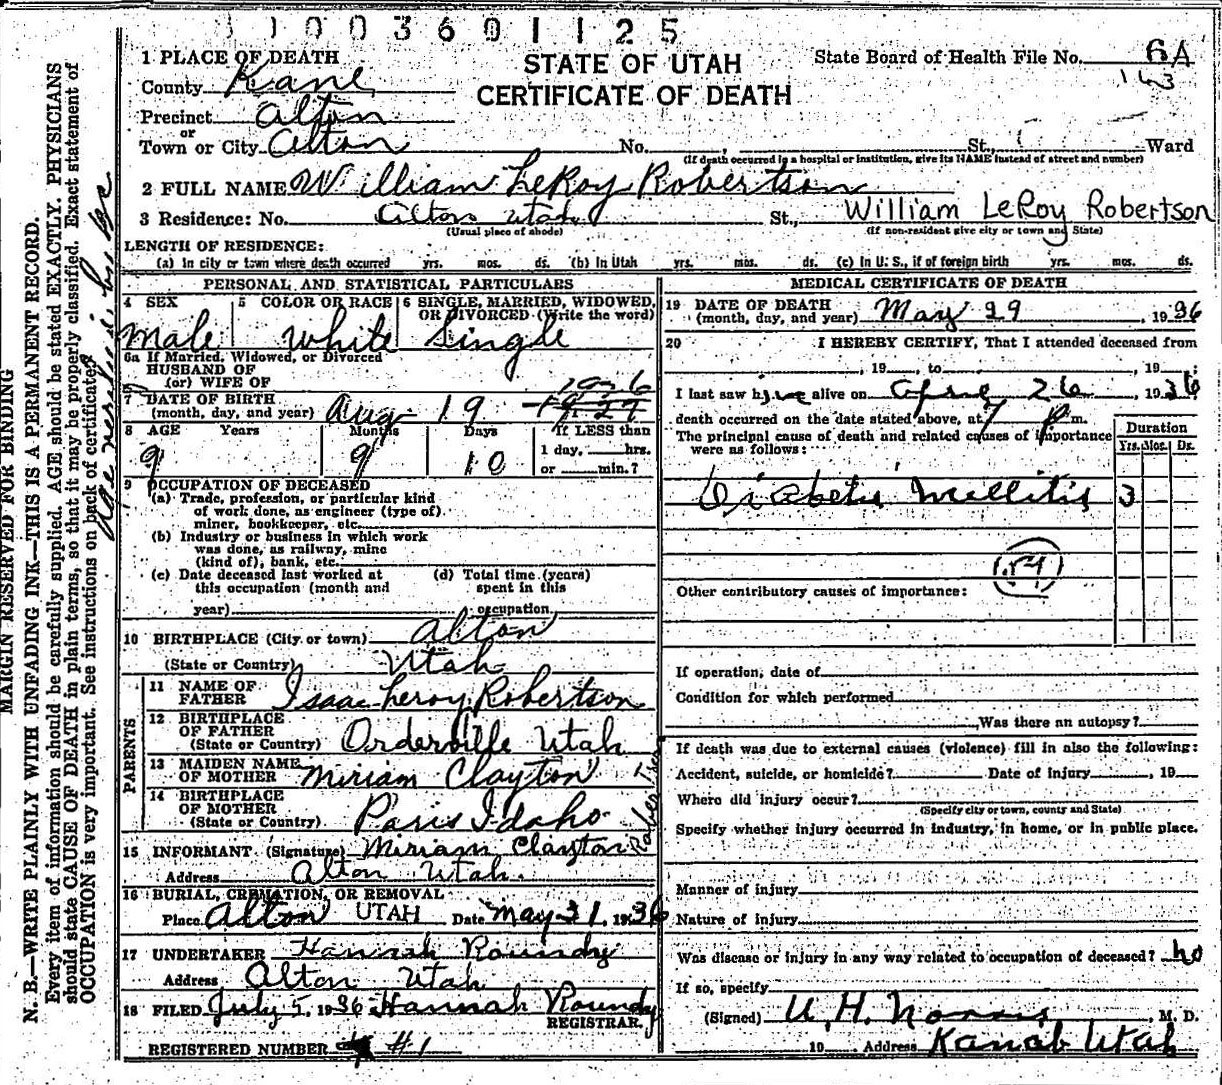 1 1 0 0 3 6 0 1 1 2 5
1 PLACE OF DEATH
County Kane
Precinct Alton
or
Town or City Alton No. St., Ward
(If death occurred in a hospital or institution, give its NAME instead of street and number)
STATE OF UTAH
CERTIFICATE OF DEATH
State Board of Health File No. 6A
143
2 FULL NAME William LeRoy Robertson
3 Residence: No. Alton Utah St., William LeRoy Robertson
(Usual place of abode) (If non-resident give city or town and State)
LENGTH OF RESIDENCE:
(a) In city or town where death occurred yrs. mos. ds. (b) In Utah yrs. mos. ds. (c) In U. S., if of foreign birth yrs. mos. ds.
PERSONAL AND STATISTICAL PARTICULARS
4 SEX 5 COLOR OR RACE 6 SINGLE, MARRIED, WIDOWED, OR DIVORCED (Write the word)
Male White Single
6a If Married, Widowed, or Divorced
HUSBAND OF
(or) WIFE OF
7 DATE OF BIRTH
(month, day, and year) Aug 19 1926
8 AGE Years Months Days If LESS than
1 day, hrs.
or min.?
9 9 10
9 OCCUPATION OF DECEASED
(a) Trade, profession, or particular kind
of work done, as engineer (type of)
miner, bookkeeper, etc.
(b) Industry or business in which work
was done, as railway, mine
(kind of), bank, etc.
(c) Date deceased last worked at
this occupation (month and
year)
(d) Total time (years)
spent in this
occupation
10 BIRTHPLACE (City or town) Alton
(State or Country) Utah
PARENTS
11 NAME OF
FATHER Isaac Leroy Robertson
12 BIRTHPLACE
OF FATHER
(State or Country) Orderville Utah
13 MAIDEN NAME
OF MOTHER Miriam Clayton
14 BIRTHPLACE
OF MOTHER
(State or Country) Paris Idaho
15 INFORMANT (Signature) Miriam Clayton
Address Alton Utah.
16 BURIAL, CREMATION, OR REMOVAL
Place Alton UTAH Date May 31, 1936
17 UNDERTAKER Hannah Roundy
Address Alton Utah
18 FILED July 5, 1936 Hannah Roundy
REGISTRAR.
REGISTERED NUMBER #1
MEDICAL CERTIFICATE OF DEATH
19 DATE OF DEATH
(month, day, and year) May 29, 1936
20 I HEREBY CERTIFY, That I attended deceased from
, 19 , to , 19 ;
I last saw him alive on April 26, 1936
death occurred on the date stated above, at 7 P m.
The principal cause of death and related causes of importance
were as follows:
Duration
Yrs. Mos. Ds.
Diabetis Mellitis 3
Other contributory causes of importance:
If operation, date of
Condition for which performed
Was there an autopsy?
If death was due to external causes (violence) fill in also the following:
Accident, suicide, or homicide? Date of injury , 19
Where did injury occur?
(Specify city or town, county and State)
Specify whether injury occurred in industry, in home, or in public place.
Manner of injury
Nature of injury
Was disease or injury in any way related to occupation of deceased? no
If so, specify
(Signed) , M. D.
19 Address Kanab Utah
MARGIN RESERVED FOR BINDING
N. B.—WRITE PLAINLY WITH UNFADING INK—THIS IS A PERMANENT RECORD.
Every item of information should be carefully supplied. AGE should be stated EXACTLY. PHYSICIANS
should state CAUSE OF DEATH in plain terms, so that it may be properly classified. Exact statement of
OCCUPATION is very important. See instructions on back of certificate.